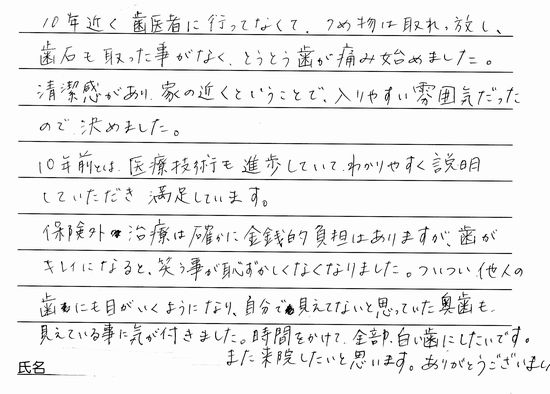 10年近く歯医者に行ってなくて、つめ物は取れっ放し、
歯石も取った事がなく、とうとう歯が痛み始めました。
清潔感があり、家の近くということで、入りやすい雰囲気だった
ので決めました。
10年前とは、医療技術も進歩していて、わかりやすく説明
していただき満足しています。
保険外治療は確かに金銭的負担はありますが、歯が
キレイになると、笑う事が恥ずかしくなくなりました。ついつい他人の
歯にも目がいくようになり、自分で見えてないと思っていた奥歯も、
見えている事に気が付きました。時間をかけて、全部、白い歯にしたいです。
また来院したいと思います。ありがとうございまし
氏名